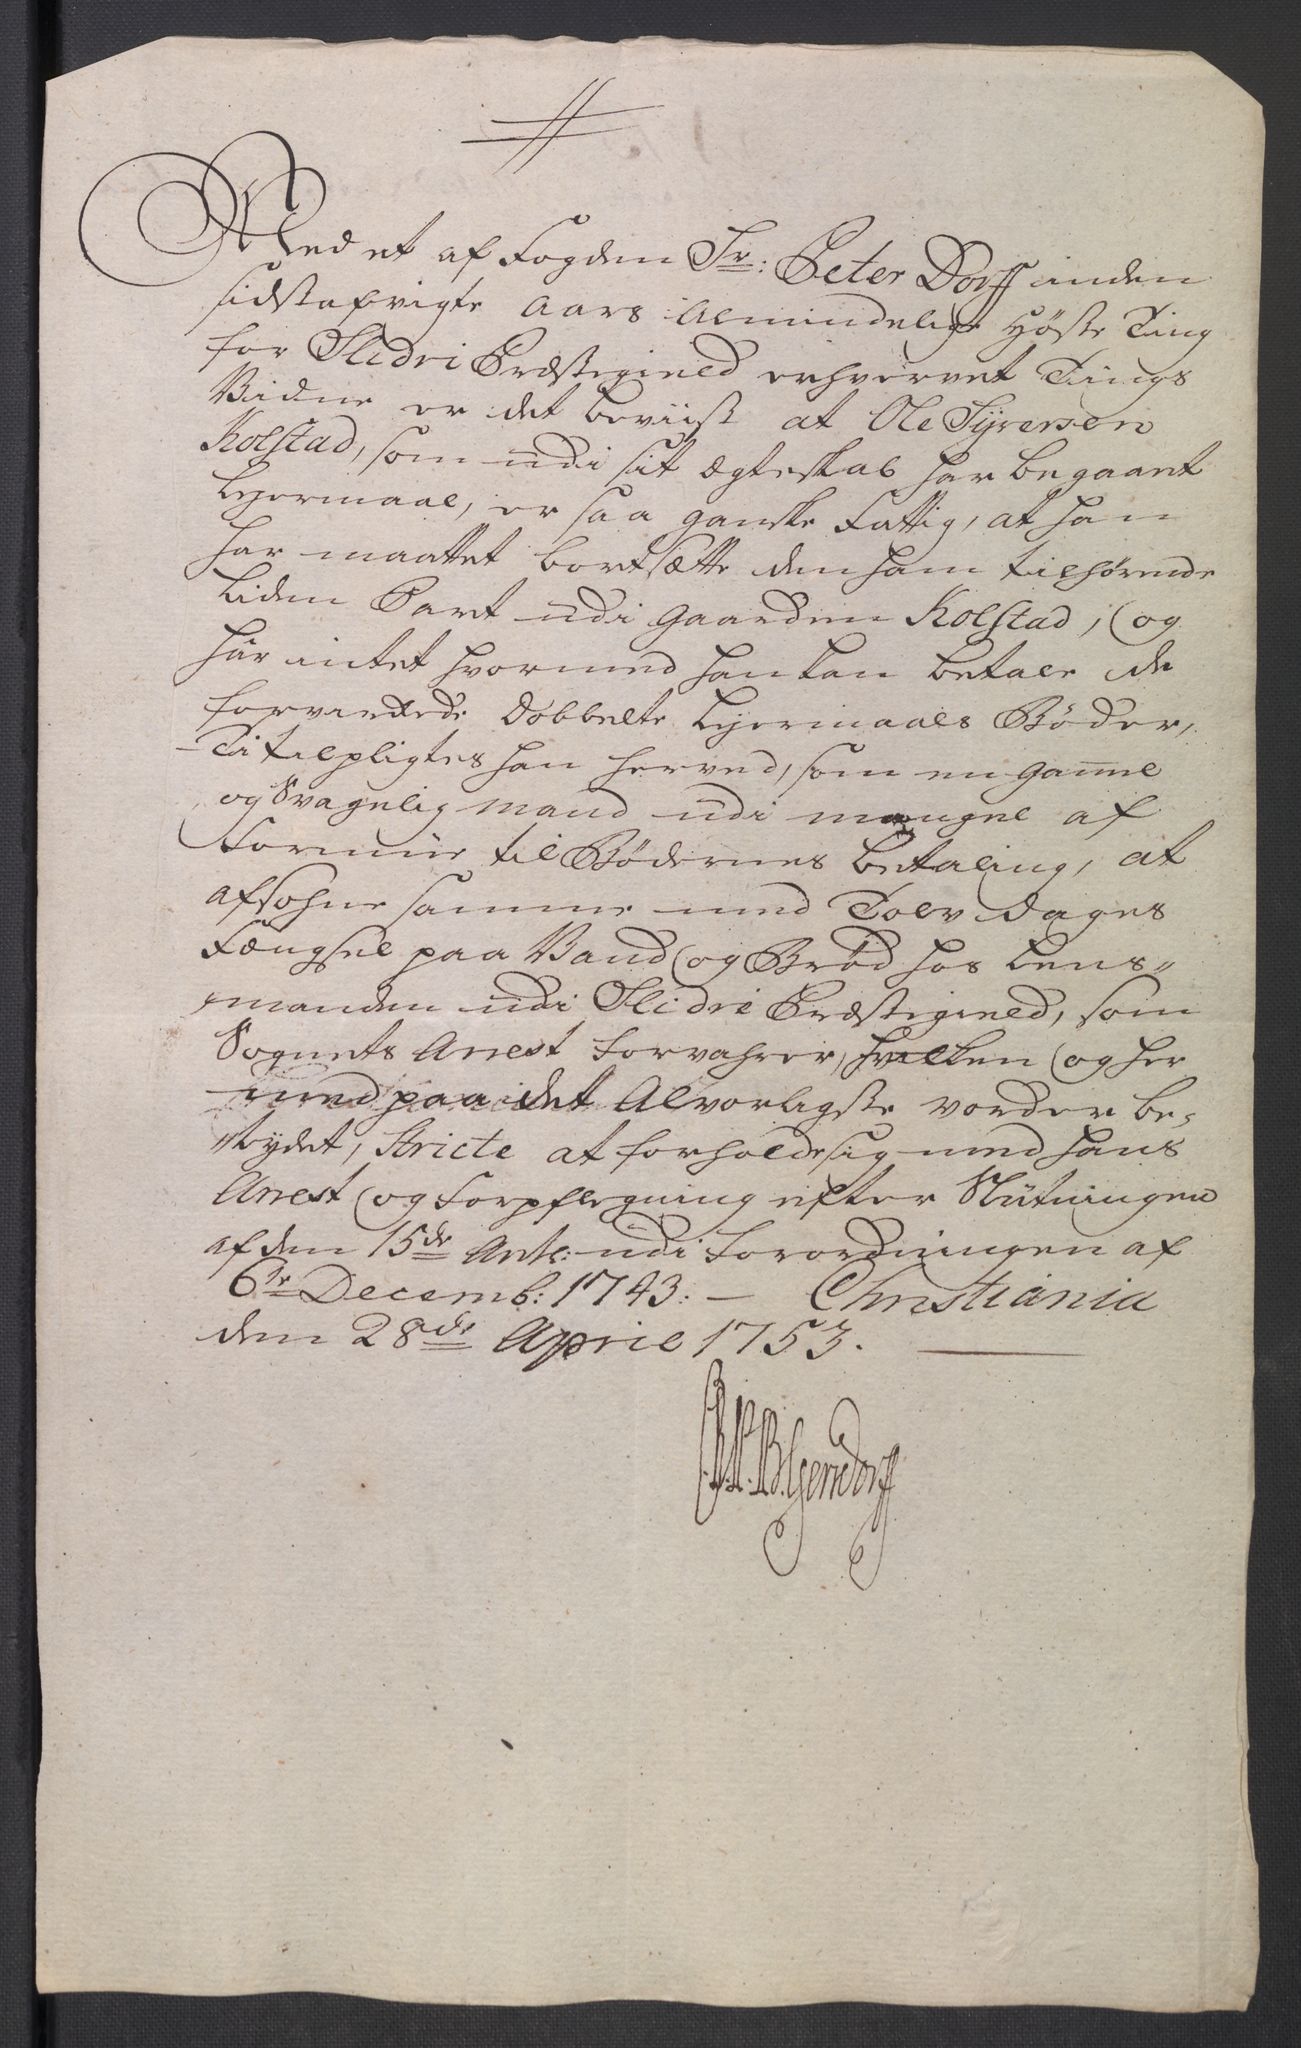 Med et af Fogden Sr: Peter Dorff inden
sidstafvigte Aars Almindelige Høste Ting
for Slidri Præstegield erhvervet Tings
Vidne er det beviist at Ole Syversen
Kolstad, som udi sit Ægteskab har begaaet
Lejermaal, er saa ganske Fattig, at han
har maattet bortsætte den ham tilhørende
Liden Part udi Gaarden Kolstad, og
har intet hvormed han kan betale de
forvirkede dobbelte Lejermaals Bøder,
Ti tilpligtes han herved, som en gammel
og Svagelig mand udi mangel af
Formue til Bødernes Betaling, at
afsohne samme med Tolv dages
Fængsel paa Vand og Brød hos Lens-
manden udi Slidre Præstegield, som
Sognets Arrest forvahrer, hvilken og her
med paa det Alvorligste vorder be-
tydet, Stricte at forholde sig med hans
Arrest og Forpflegning efter Slutningen
af den 15de Artic: udi Forordningen af
6te Decemb: 1743. — Christiania
den 28de April 1753.